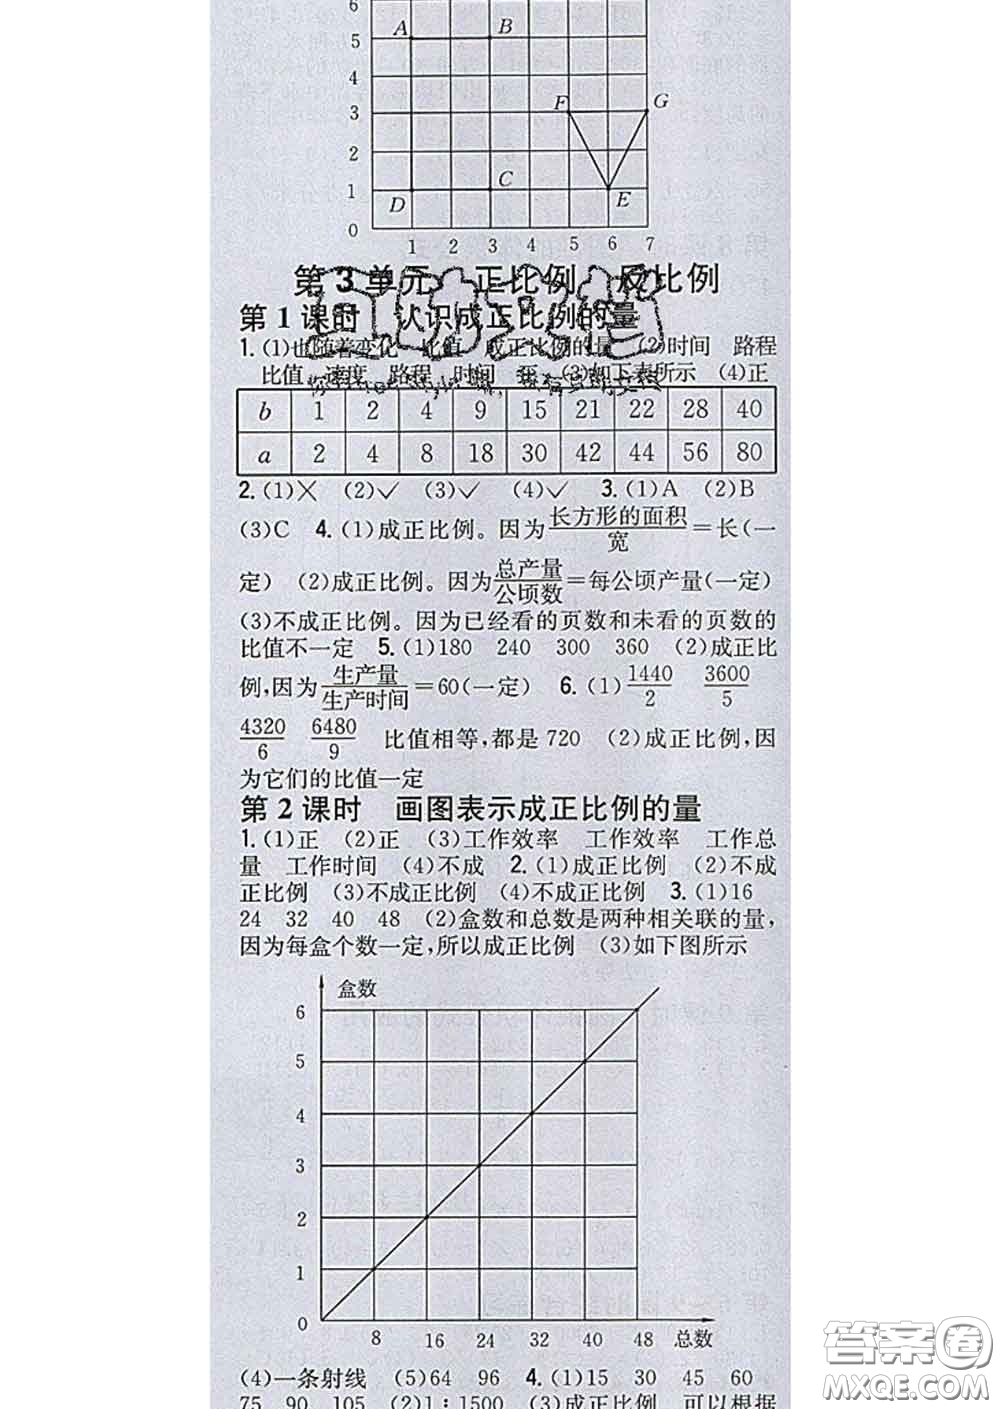 6
5
A
B
4
3
F
G
2
1
D
C
E
0
1 2 3 4 5 6 7
第 3 单元 正比例 反比例
第 1 课时 认识成正比例的量
1. (1)也随着变化 比值 成正比例的量 (2)时间 路程
比值 速度 路程 时间 (3)如下表所示 (4)正
b 1 2 4 9 15 21 22 28 40
a 2 4 8 18 30 42 44 56 80
2. (1)✕ (2)✓ (3)✓ (4)✓ 3. (1)A (2)B
(3)C 4. (1)成正比例。因为长方形的面积/宽=长(一
定) (2)成正比例。因为总产量/公顷数=每公顷产量(一定)
(3)不成正比例。因为已经看的页数和未看的页数的
比值不一定 5. (1)180 240 300 360 (2)成正比
例,因为生产量/生产时间=60(一定) 6. (1)1440/2 3600/5
4320/6 6480/9 比值相等,都是 720 (2)成正比例,因
为它们的比值一定
第 2 课时 画图表示成正比例的量
1. (1)正 (2)正 (3)工作效率 工作效率 工作总
量 工作时间 (4)不成 2. (1)成正比例 (2)不成
正比例 (3)不成正比例 (4)不成正比例 3. (1)16
24 32 40 48 (2)盒数和总数是两种相关联的量,
因为每盒个数一定,所以成正比例 (3)如下图所示
盒数
6
5
4
3
2
1
0
8 16 24 32 40 48 总数
(4)一条射线 (5)64 96 4. (1)15 30 45 60
75 90 105 (2)1∶1500 (3)成正比例 可以根据
答案圈
MXQE.COM